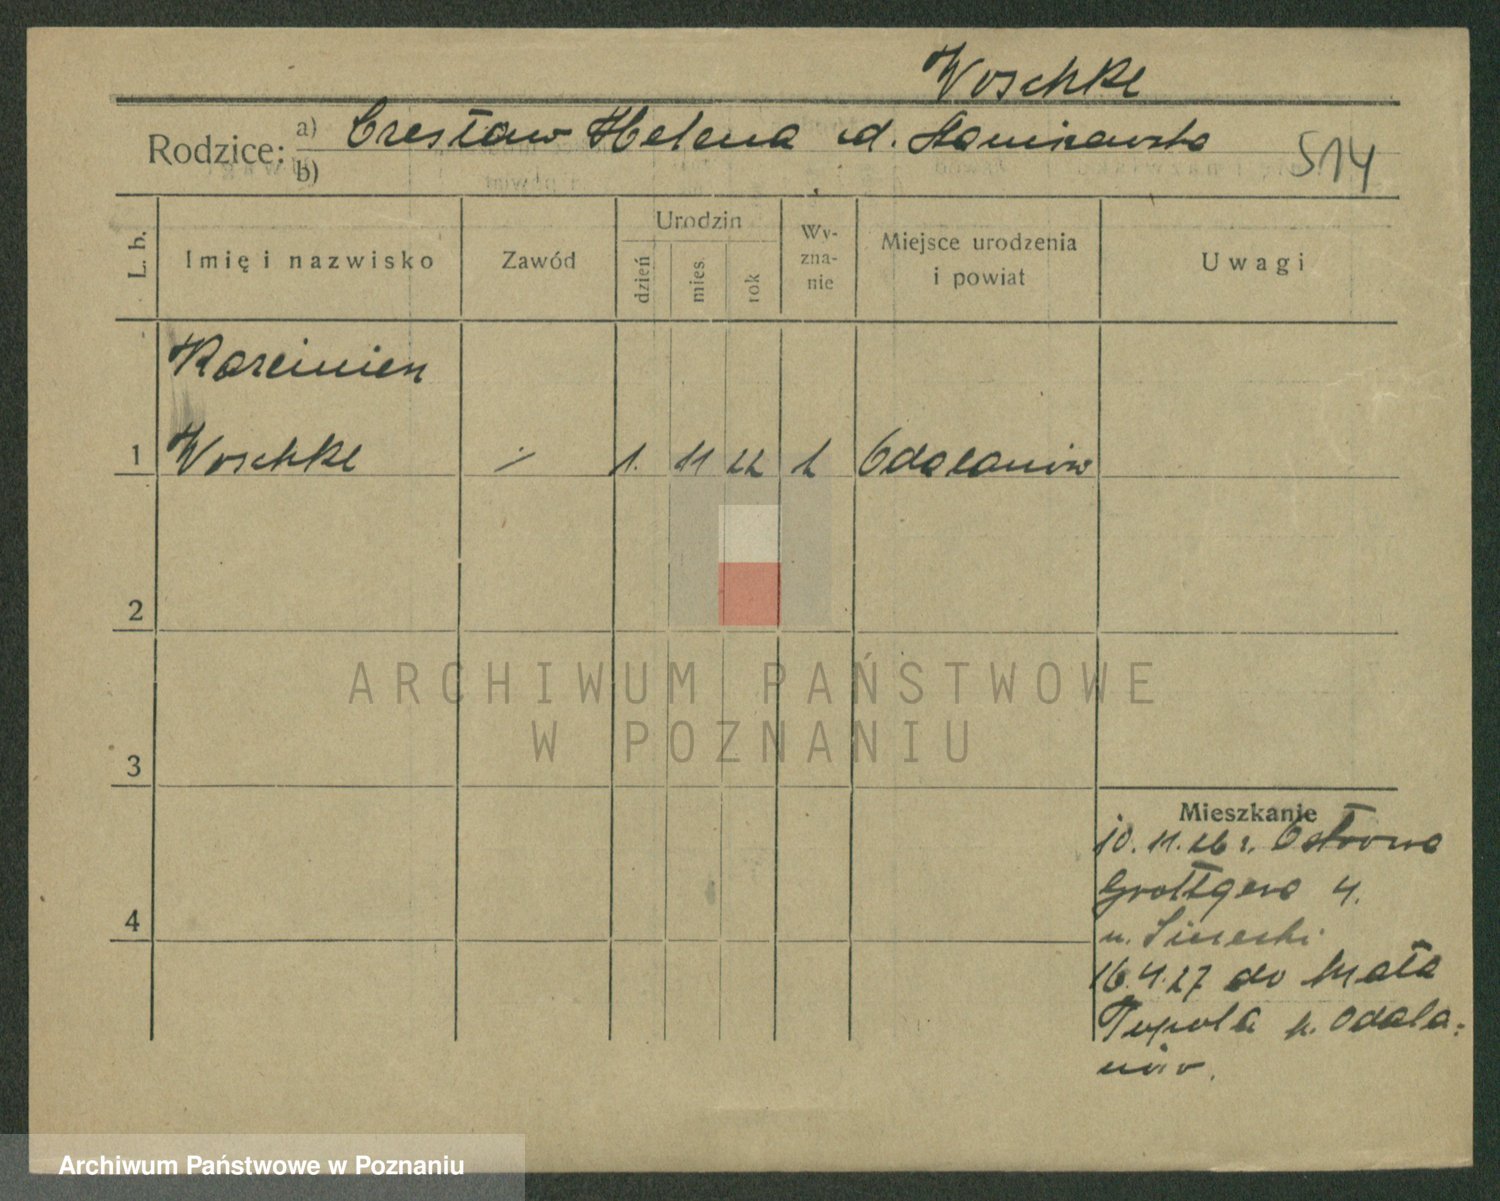 Woschke
Rodzice: a) Czesław Helena d. Staniszewska
b)
514
L. b.
Imię i nazwisko
Zawód
Urodzin
dzień
mies.
rok
Wy-
zna-
nie
Miejsce urodzenia
i powiat
Uwagi
Kazimierz
1 Woschke ./. 1. 11 22 k Odolanów
2
3
4
Mieszkanie
10.11.26 r. Ostrowo
Grottgera 4.
u.
16.4.27 do Mała
Topola p. Odola-
nów.
ARCHIWUM PAŃSTWOWE
W POZNANIU
Archiwum Państwowe w Poznaniu